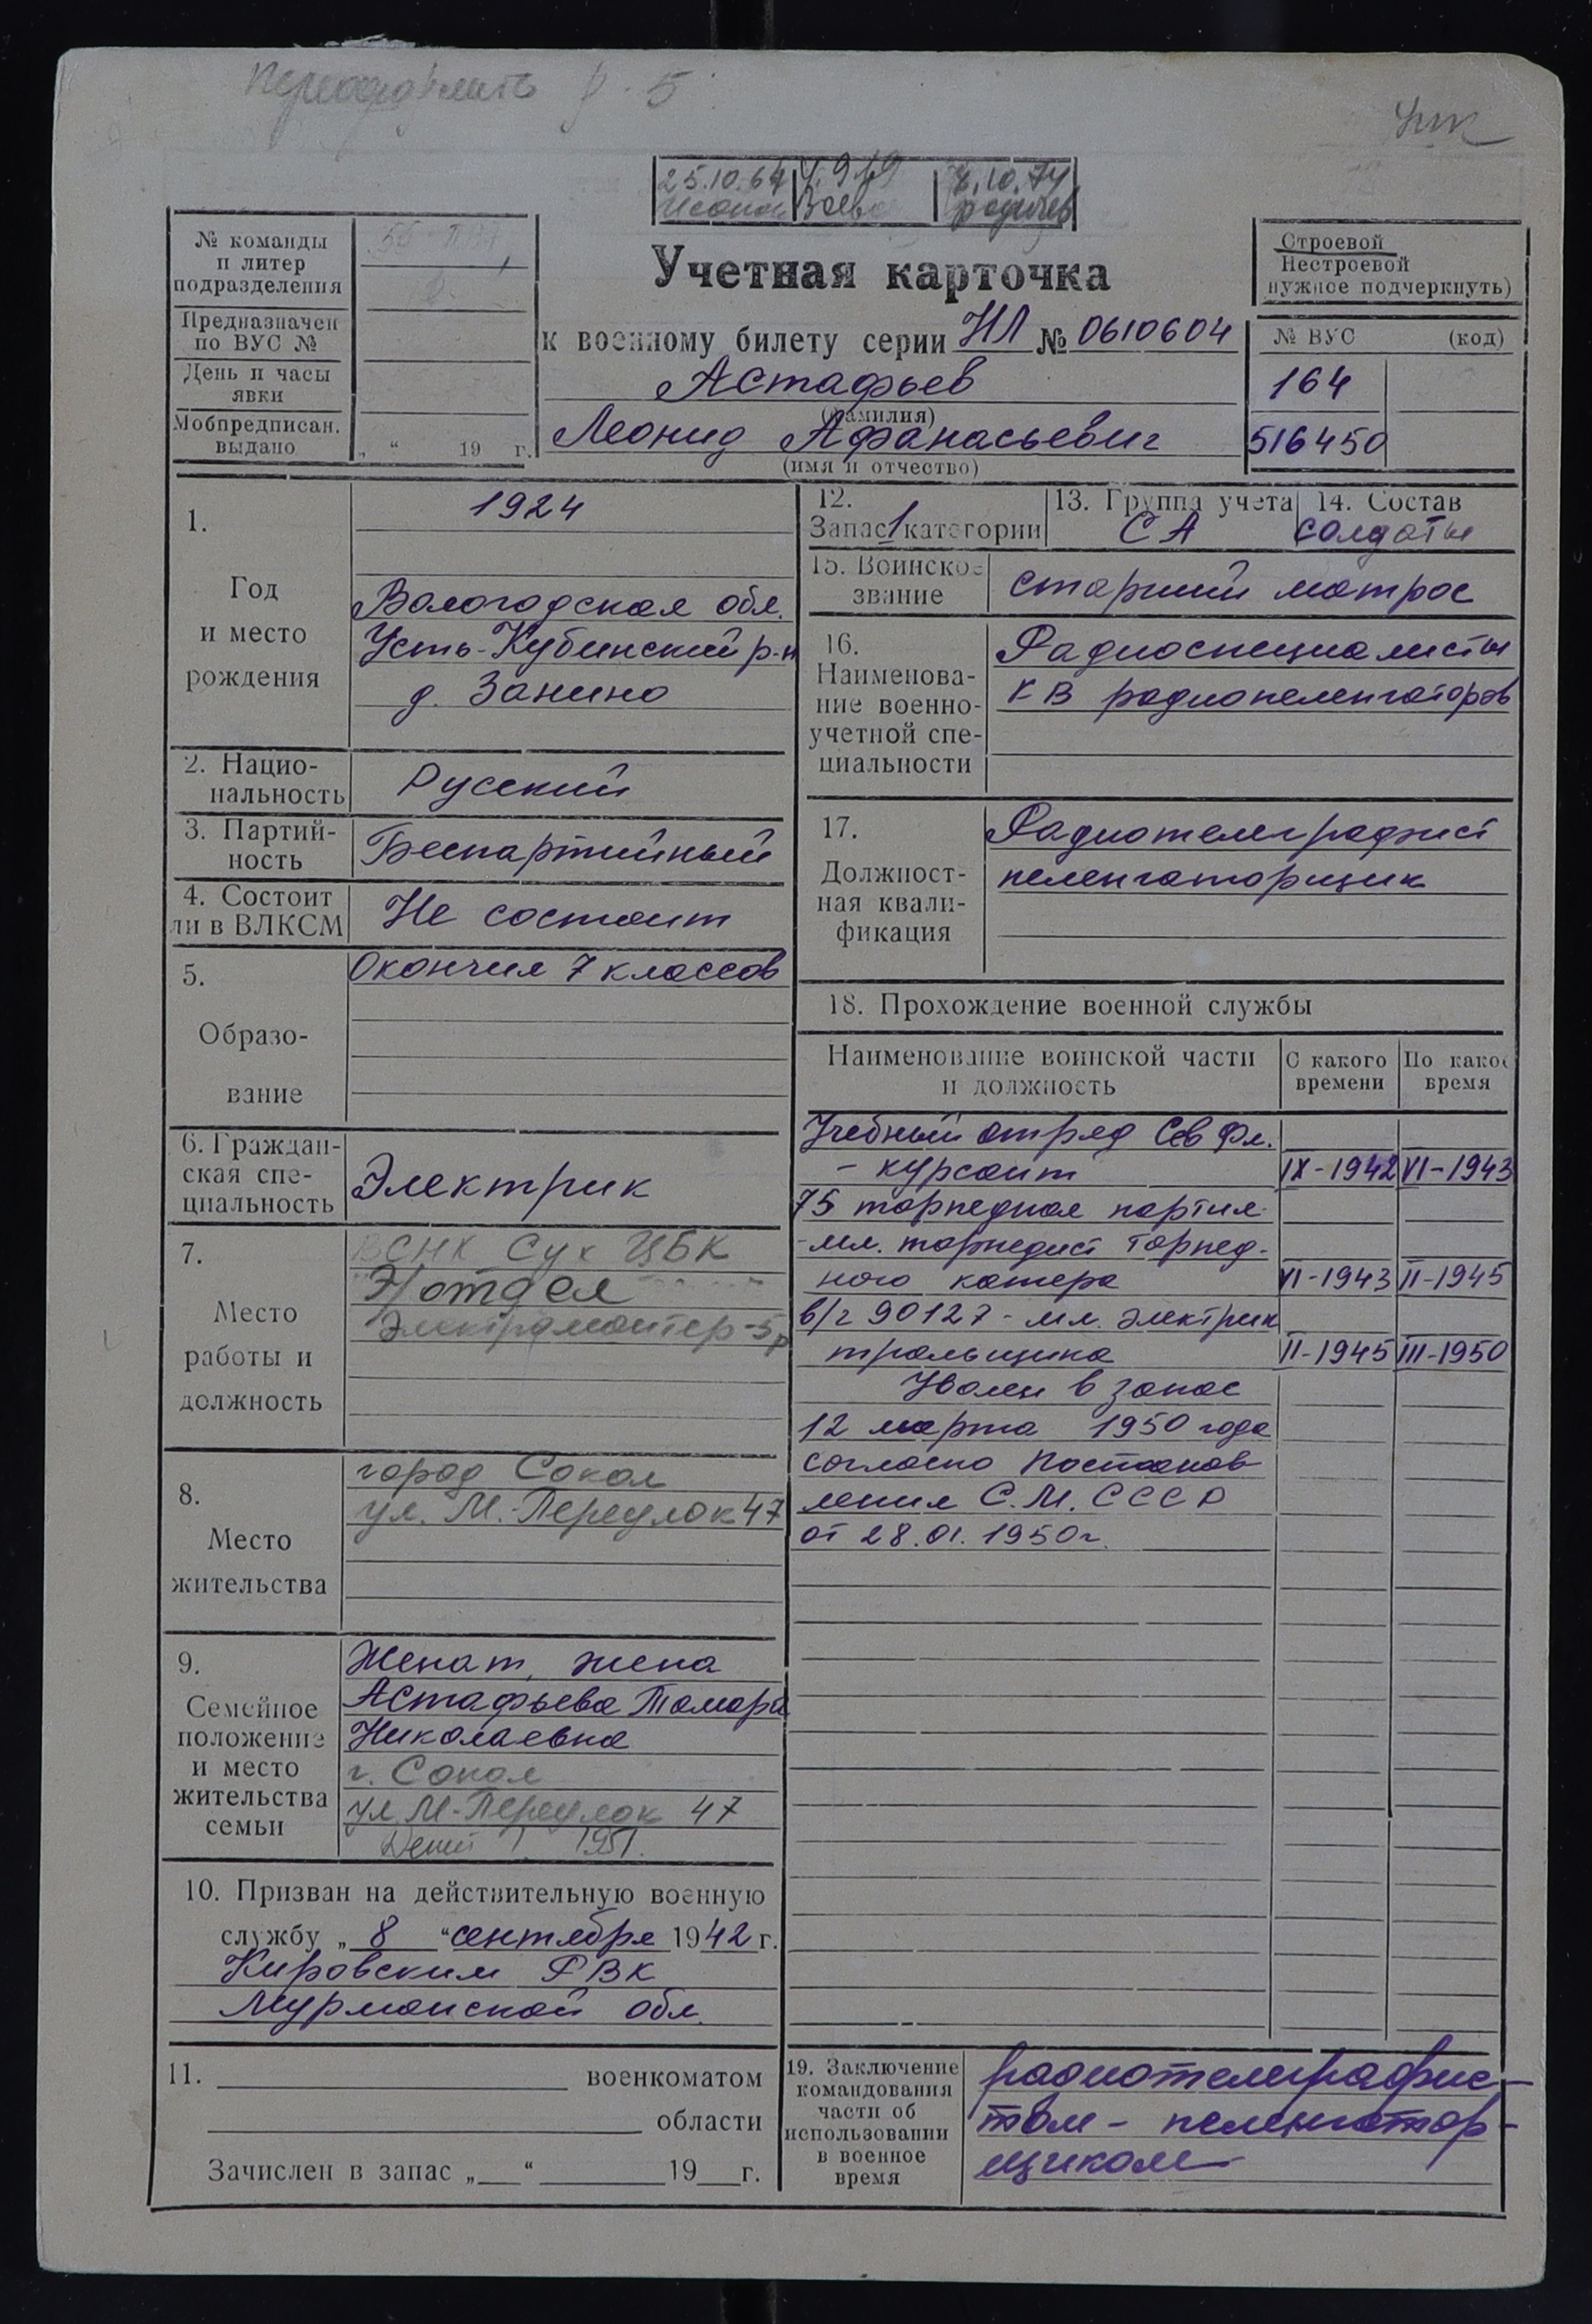 Переоформить р. 5
25.10.64 4.9.69 7.10.74
№ команды
и литер
подразделения
Предназначен
по ВУС №
День и часы
явки
Мобпредписан.
выдано „ “ 19 г.
Учетная карточка
к военному билету серии НЛ № 0610604
Астафьев
(фамилия)
Леонид Афанасьевич
(имя и отчество)
Строевой
Нестроевой
нужное подчеркнуть)
№ ВУС (код)
164
516450
1.
Год
и место
рождения
1924
Вологодская обл.
Усть-Кубинский р-н
д. Занино
2. Нацио-
нальность
Русский
3. Партий-
ность
Беспартийный
4. Состоит
ли в ВЛКСМ
Не состоит
5.
Образо-
вание
Окончил 7 классов
6. Граждан-
ская спе-
циальность
Электрик
7.
Место
работы и
должность
Сух ЦБК
Э/отдел
Электромонтер-5р
8.
Место
жительства
город Сокол
ул. М.-Переулок 47
9.
Семейное
положение
и место
жительства
семьи
Женат, жена
Астафьева Тамара
Николаевна
г. Сокол
ул. М-Переулок 47
Детей 1. 1951.
10. Призван на действительную военную
службу „ 8 “ сентября 1942 г.
Кировским РВК
Мурманской обл.
11. военкоматом
области
Зачислен в запас „ “ 19 г.
12.
Запас 1 категории
13. Группа учета
СА
14. Состав
солдаты
15. Воинское
звание
старший матрос
16.
Наименова-
ние военно-
учетной спе-
циальности
Радиоспециалисты
КВ радиопеленгаторов
17.
Должност-
ная квали-
фикация
Радиотелеграфист
пеленгаторщик
18. Прохождение военной службы
Наименование воинской части
и должность
С какого
времени
По какое
время
Учебный отряд Сев Фл.
- курсант IX-1942 VI-1943
75 торпедная партия
-мл. торпедист торпед-
ного катера VI-1943 II-1945
в/ч 90127 - мл. электрик
тральщика II-1945 III-1950
Уволен в запас
12 марта 1950 года
согласно Постанов
ления С.М. СССР
от 28.01.1950г.
19. Заключение
командования
части об
использовании
в военное
время
радиотелеграфис-
том - пеленгатор-
щиком